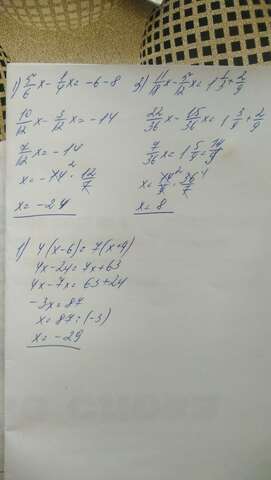 1) 5/6x - 1/4x = -6 - 8
10/12x - 3/12x = -14
7/12x = -14
x = -14² · 12/7
x = -24
2) 11/18x - 5/12x = 1 1/3 + 2/9
22/36x - 15/36x = 1 3/9 + 2/9
7/36x = 1 5/9 = 14/9
x = 14²/9 · 36⁴/7
x = 8
1) 4(x-6) = 7(x+9)
4x - 24 = 7x + 63
4x - 7x = 63 + 24
-3x = 87
x = 87 : (-3)
x = -29